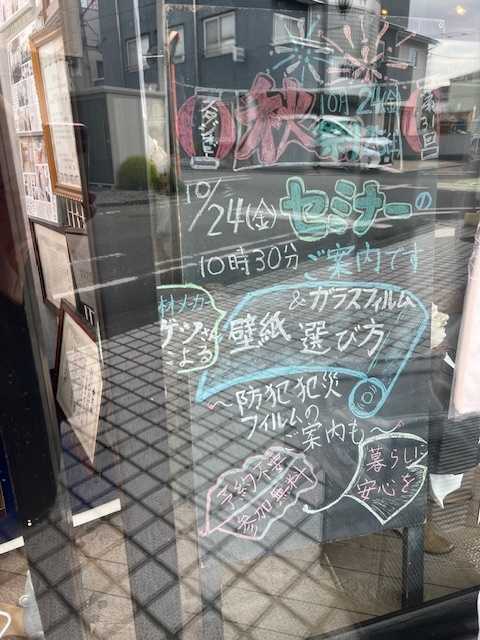 スタジオ
秋祭
10月24(金)
第31回
10/24(金)
セミナーの
10時30分 ご案内です
材メーカー
ゲンさん
による
&ガラスフィルム
壁紙 選び方
～防犯犯災
フィルムの
ご案内も～
予約不要
参加無料
暮らしに
安心を